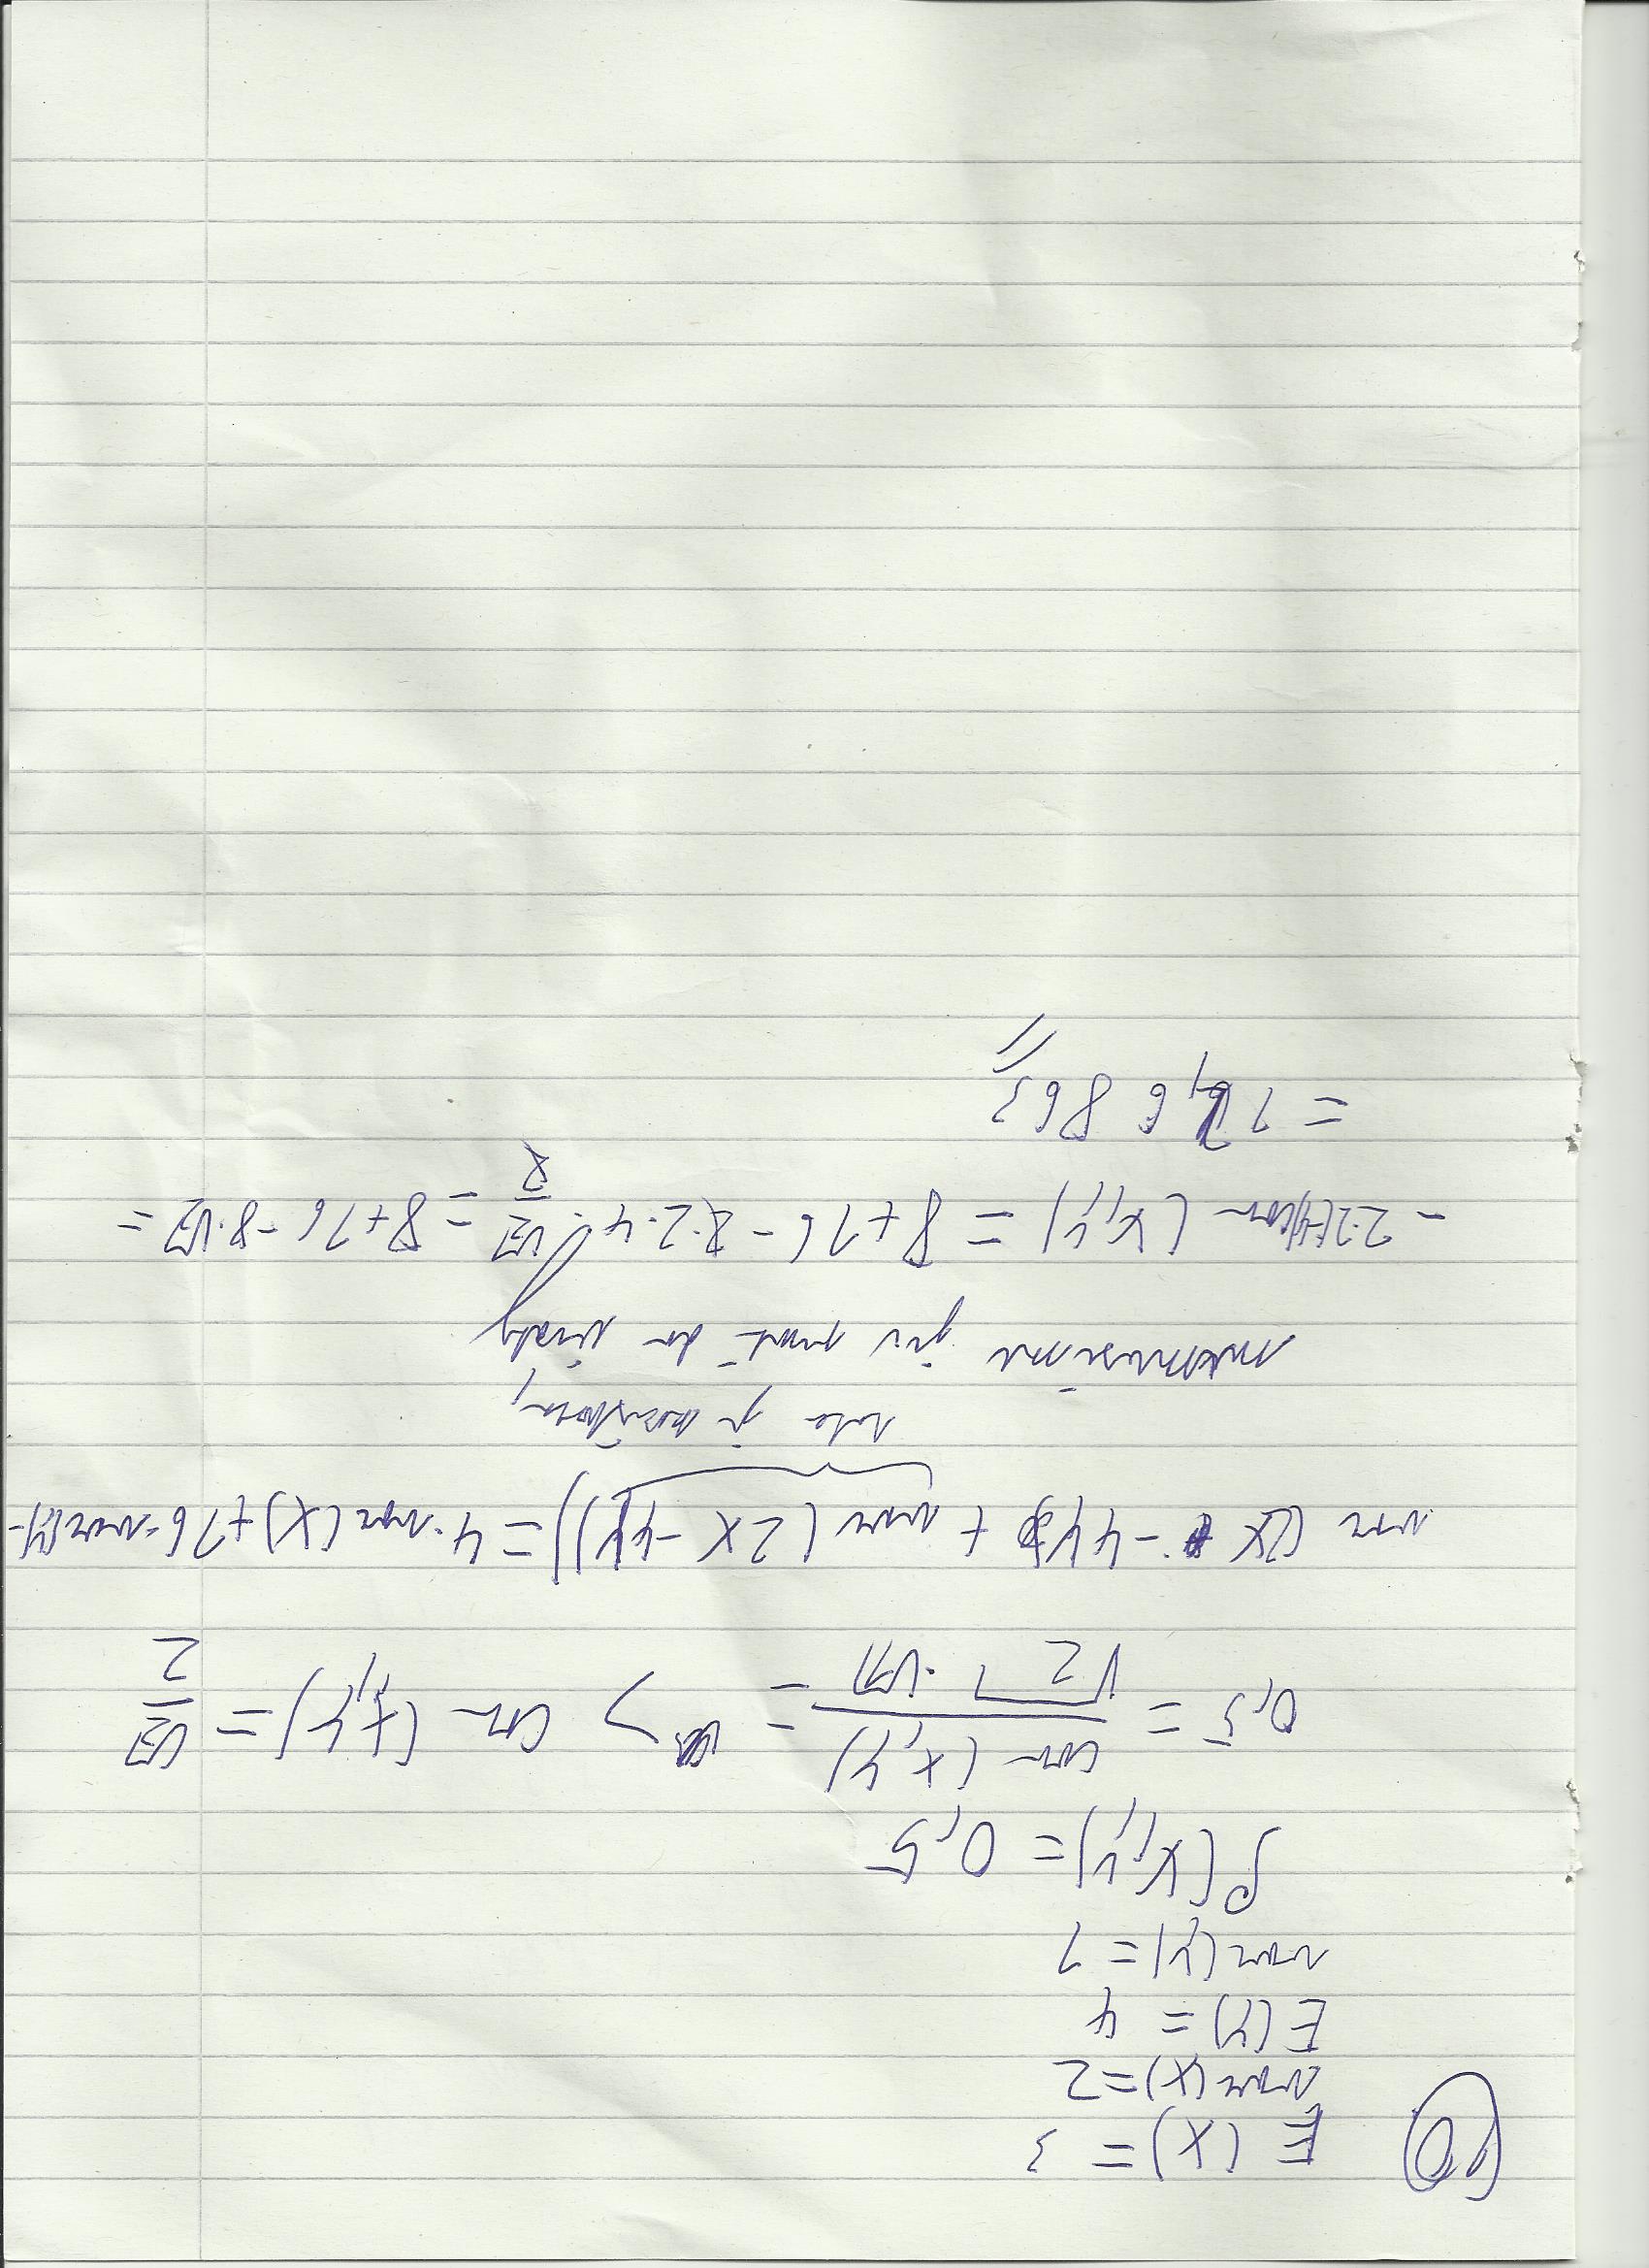 10
E(X) = 3
var(X) = 2
E(Y) = 4
var(Y) = 1
ρ(X,Y) = 0,5
0,5 = cov(X,Y) / (√2 · √1) = > cov(X,Y) = √2 / 2
var(2X - 4Y + var(2X - 4Y)) = 4·var(X) + 16·var(Y) -
toto je konstanta,
nemusíme ji vzít do úvahy
- 2·2(-4)cov(X,Y) = 8 + 16 - 2·2·4·√2/2 = 8 + 16 - 8·√2 =
= 12,6863